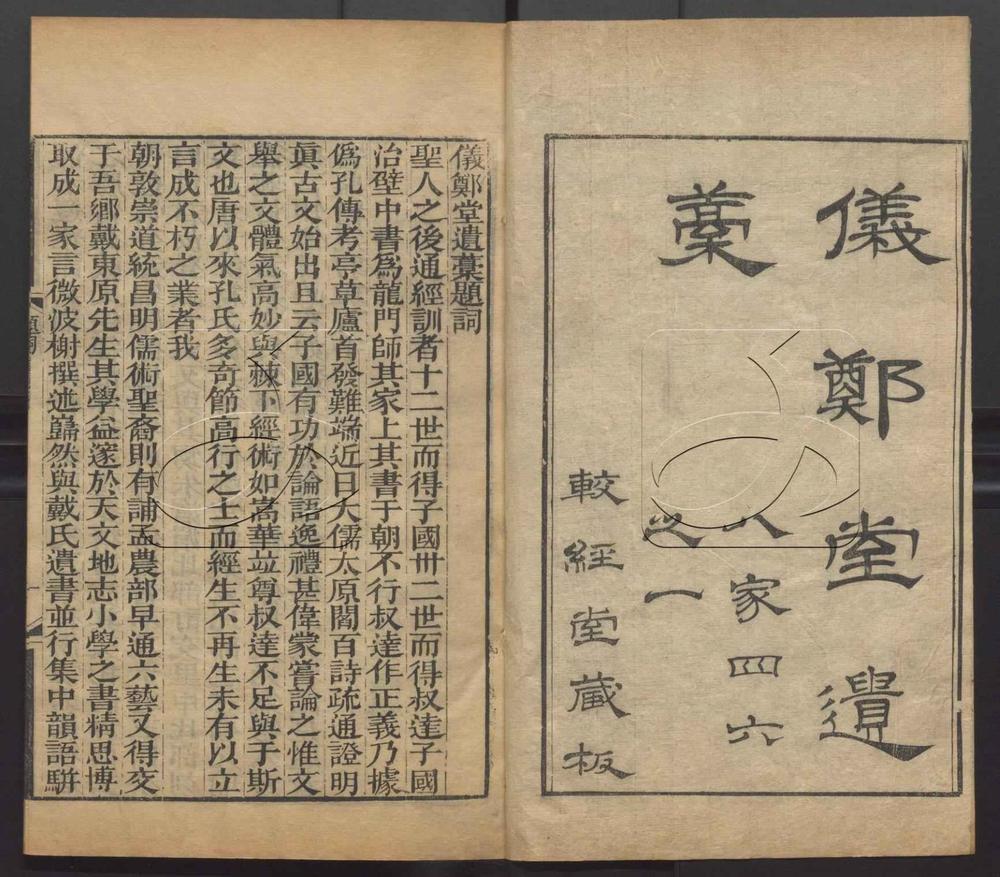 儀鄭堂遺
藁
八家四六
之一
較經堂藏板
儀鄭堂遺藁題詞
聖人之後通經訓者十二世而得子國卅二世而得叔達子國
治壁中書為龍門師其家上其書于朝不行叔達作正義乃據
偽孔傳考亭草廬首發難端近日大儒太原閻百詩疏通證明
眞古文始出且云子國有功於論語逸禮甚偉蒙嘗論之惟文
舉之文體氣高妙與棘下經術如嵩華竝尊叔達不足與于斯
文也唐以來孔氏多奇節高行之士而經生不再生未有以立
言成不朽之業者我
朝敦崇道統昌明儒術聖裔則有誧孟農部早通六藝又得交
于吾鄉戴東原先生其學益邃於天文地志小學之書精思博
取成一家言微波榭撰述巋然與戴氏遺書並行集中韻語駢
題詞